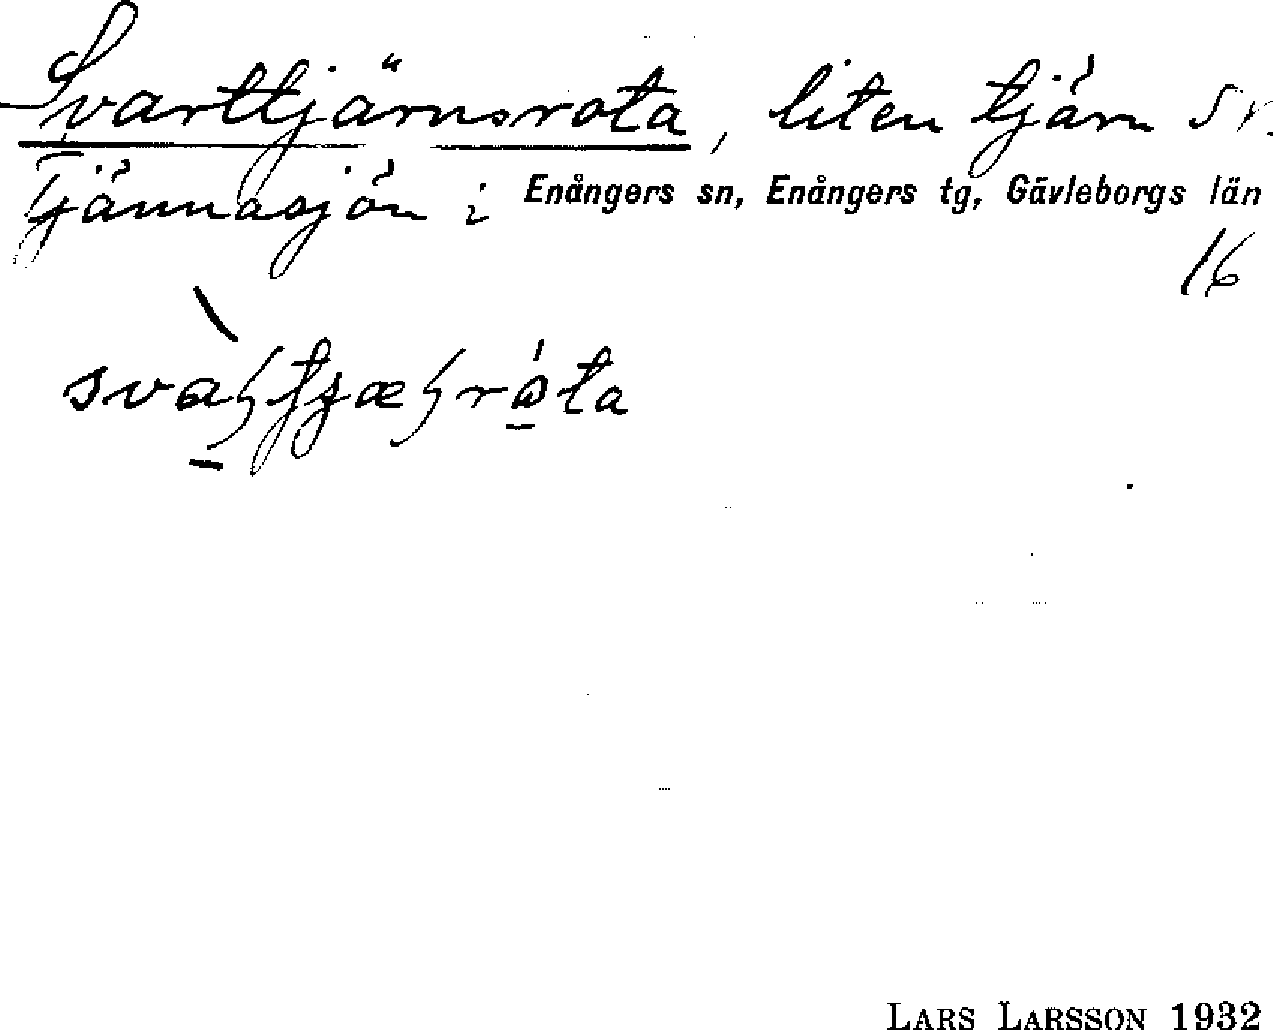 Svarttjärnsrota, liten tjärn sv.
Tjännåsjön i Enångers sn, Enångers tg, Gävleborgs län
16
LARS LARSSON 1932